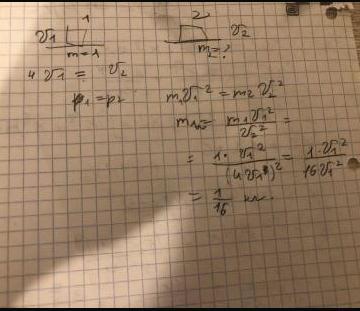 1 2
𝒱1 𝒱2
m=1 m=?
4𝒱1 = 𝒱2
p1 = p2 m1𝒱1² = m2𝒱2²
m1𝒱1² / 𝒱2² =
= 1·𝒱1² / (4𝒱1)² = 1·𝒱1² / 16𝒱1²
= 1/16 кг.